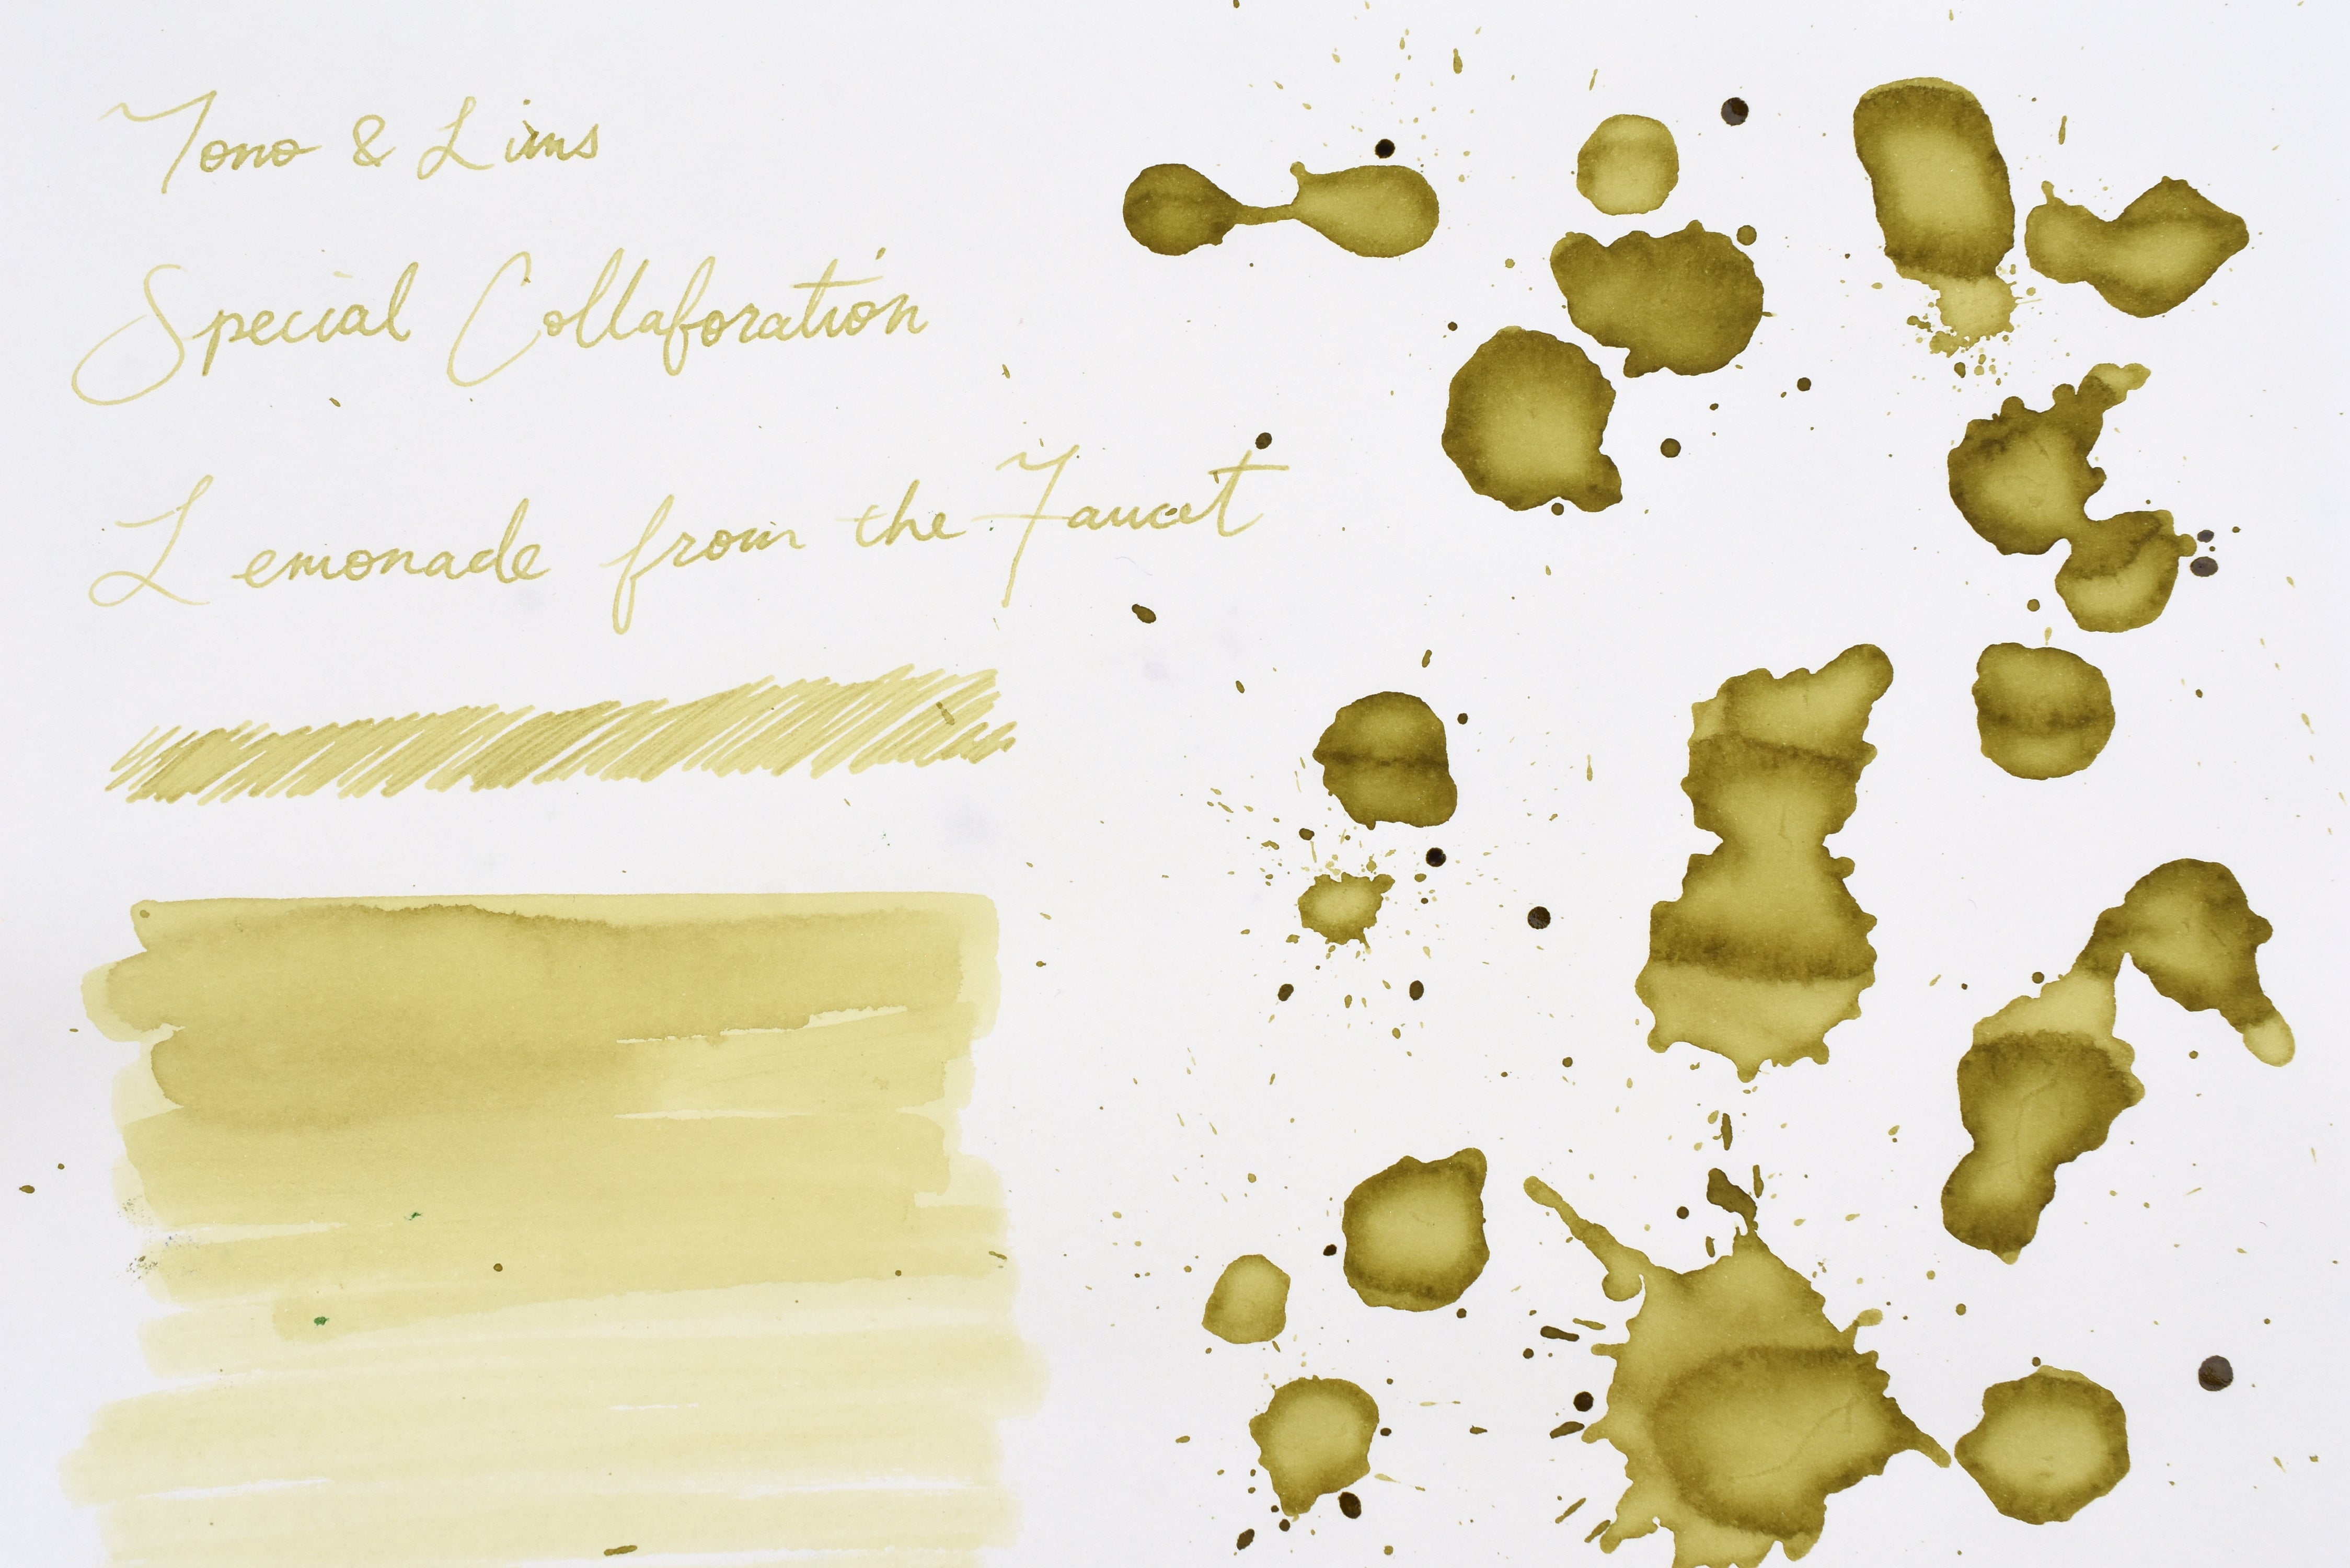 Tono & Lims
Special Collaboration
Lemonade from the Faucet